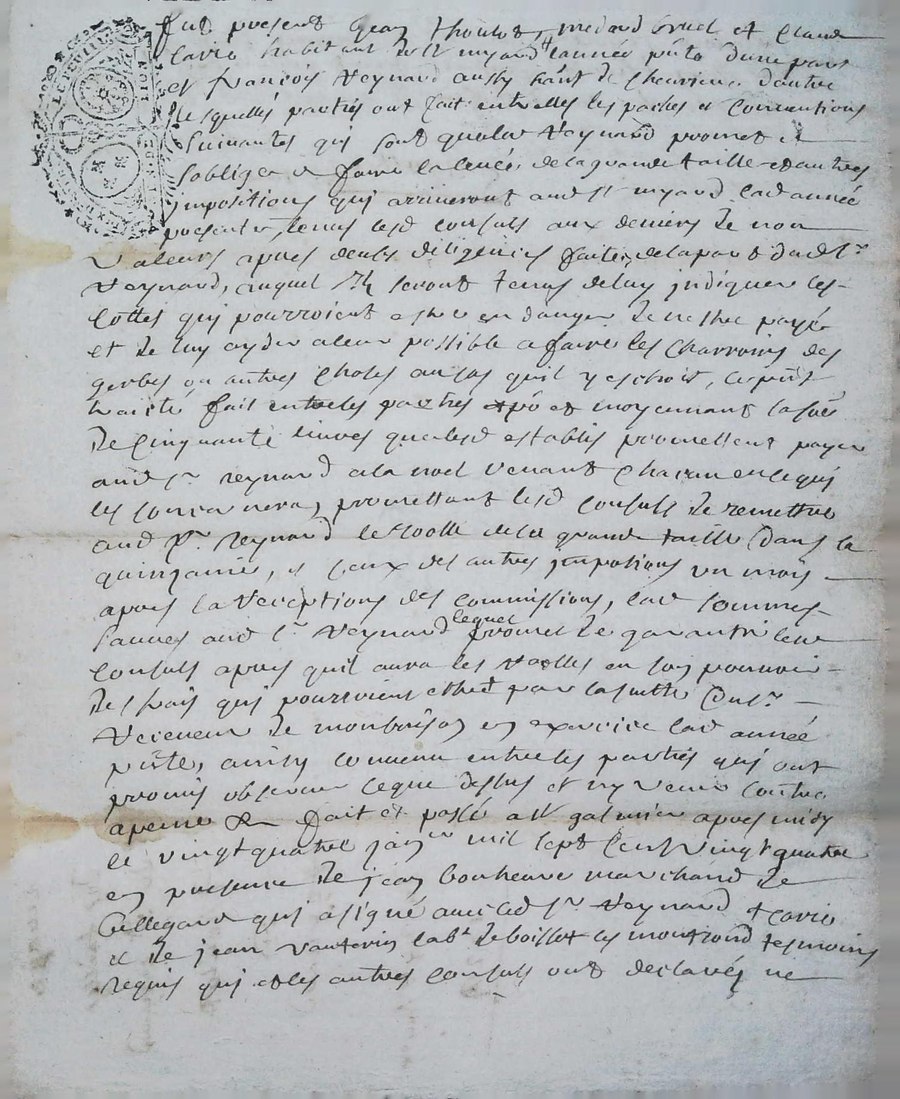 furent presents Jean thoulot, medard bruel et Claude
Cario habitant de St myard lannee pnte dune part
et francois Reynard aussy habt de Chevrieres dautre
lesquelles parties ont fait entrelles les paches et Conventions
suivantes qui sont que led Reynard promet et
soblige de faire la levée de la grande taille et autres
impositions qui arriveront aud St myard lad année
presente, tenus lesd consuls aux deniers de non
Valeurs apres deues diligences faites de la part dud Sr
Reynard, auquel ils seront tenus de luy indiquer les
Cottes qui pourroient estre en danger de nestre payé
et de luy ayder a leur possible a faire les Charroirs des
gerbes ou autres choses au cas quil y eschoit, le pnt
traité fait entre les parties et moyennant la som
de Cinquante livres que lesd establis promettent payer
aud Sr Reynard a la noel venant Chacun en ce qui
les concernera, promettant lesd Consuls de remettre
aud Sr Reynard le Roolle de la grande taille dans la
quinzaine, et ceux des autres impositions un mois
apres la Receptions des commissions, lad sommes
aud Sr Reynard lequel promet de garantir lesd
Consuls apres quil aura les Roolles en son pouvoir
des frais qui pourroient estre par la suitte du Sr
Receveur de montbrison en exercice lad année
pnte, ainsy convenu entre les parties qui ont
promis observer ce que dessus et ny venir Contre
a peine & fait et passé a St galmier apres midy
le vingt quatre janer mil sept Cent Vingt quatre
en presence de jean bonheure marchand de
Bellegarde qui a signé avec led Sr Reynard & Cario
et de jean Vauterin labr de boisset les montrond tesmoins
requis qui et les autres Consuls ont declarés ne